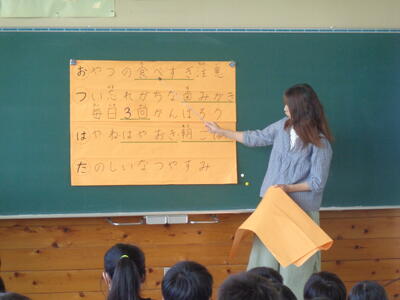 おやつの食べすぎ注意
つい忘れがちな歯みがき
毎日3回がんばろう
はやねはやおき朝ごはん
たのしいなつやすみ